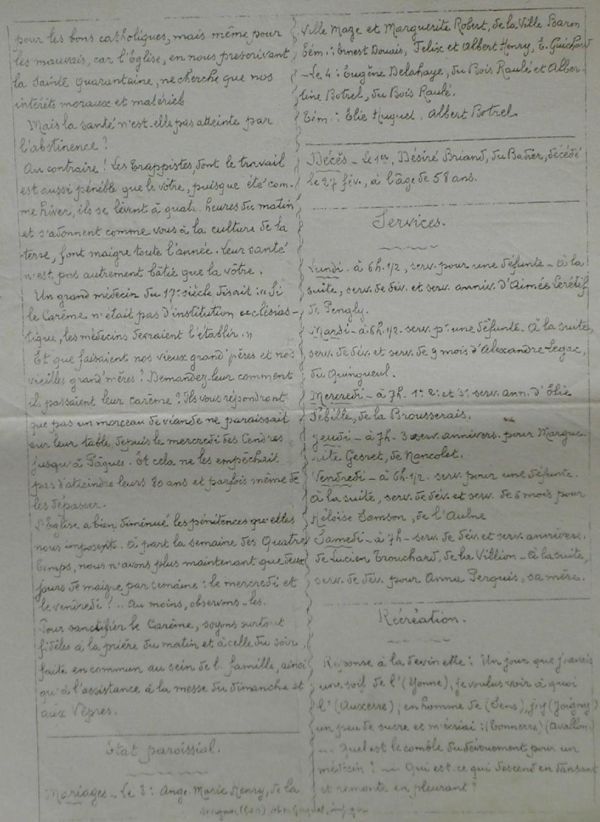 pour les bons catholiques, mais même pour
les mauvais, car l'église, en nous prescrivant
la Sainte Quarantaine, ne cherche que nos
intérêts moraux et matériels
Mais la santé n'est-elle pas atteinte par
l'abstinence ?
Au contraire ! Les Trappistes, dont le travail
est aussi pénible que le vôtre, puisque été com-
me hiver, ils se lèvent à quatre heures du matin
et s'adonnent comme vous à la culture de la
terre, font maigre toute l'année. Leur santé
n'est pas autrement bâtie que la vôtre.
Un grand médecin du 17e siècle disait : « Si
le Carême n'était pas d'institution ecclésias-
tique, les médecins devraient l'établir. »
Et que faisaient nos vieux grand'pères et nos
vieilles grand'mères ? Demandez-leur comment
il passaient leur carême ? Ils vous répondront
que pas un morceau de viande ne paraissait
sur leur table depuis le mercredi des Cendres
jusqu'à Pâques. Et cela ne les empêchait
pas d'atteindre leurs 80 ans et parfois même de
les dépasser.
L'Eglise a bien diminué les pénitences qu'elles
nous imposent. A part la semaine des Quatre
Temps, nous n'avons plus maintenant que deux
jours de maigre par semaine : le mercredi et
le vendredi ! .. Au moins, observons-les.
Pour sanctifier le Carême, soyons surtout
fidèles à la prière du matin et à celle du soir
faite en commun au sein de la famille, ainsi
qu'à l'assistance à la messe du dimanche et
aux Vêpres.
Etat paroissial.
Mariages - le 3 : Ange Marie Henry, de la
Ville Mage et Marguerite Robert, de la Ville Baron
Tém. : Ernest Douais, Felix et Albert Henry, E. Guichard
- Le 4 : Eugène Delahaye, du Bois Raulé et Alber-
tine Botrel, du Bois Raulé.
Tém. : Elie Huguel. Albert Botrel.
Décès - Le 1er, Désiré Briand, du décédé
le 27 fév., à l'âge de 58 ans.
Services.
Lundi - à 6h.1/2, serv. pour une défunte - à la
suite, serv. de dév. et serv. anniv. d'Aimée
de Pengly.
Mardi - à 6h.1/2 - serv. pr. une défunte. A la suite,
serv. de dév. et serv. de 9 mois d'Alexandre Legac,
du Quingueul.
Mercredi - à 7h. 1e 2e et 3e serv. ann. d'Elie
Sébille, de la Brousserais.
Jeudi - à 7h. 3 serv. annivers. pour Margue-
rite Gesret, de Nancolet.
Vendredi - à 6h.1/2 serv. pour une défunte
à la suite, serv. de dév. et serv. de 6 mois pour
Héloïse Samson, de l'Aulne
Samedi - à 7h - serv. de dév. et serv. annivers.
de Lucien Trouchard, de la Villion - à la suite,
serv. de dév. pour Anna Perquis, sa mère.
Récréation.
Réponse à la devinette : Un jour que j'avais
une soif de l'(Yonne), je voulus voir à quoi
l'(Auxerre) ; en homme de (Sens), j'y (Joigny)
un peu de sucre et m'écriai : (Tonnerre) (Avallon)
- Quel est le comble du dévouement pour un
médecin ? - Qui est ce qui descend en dansant
et remonte en pleurant ?